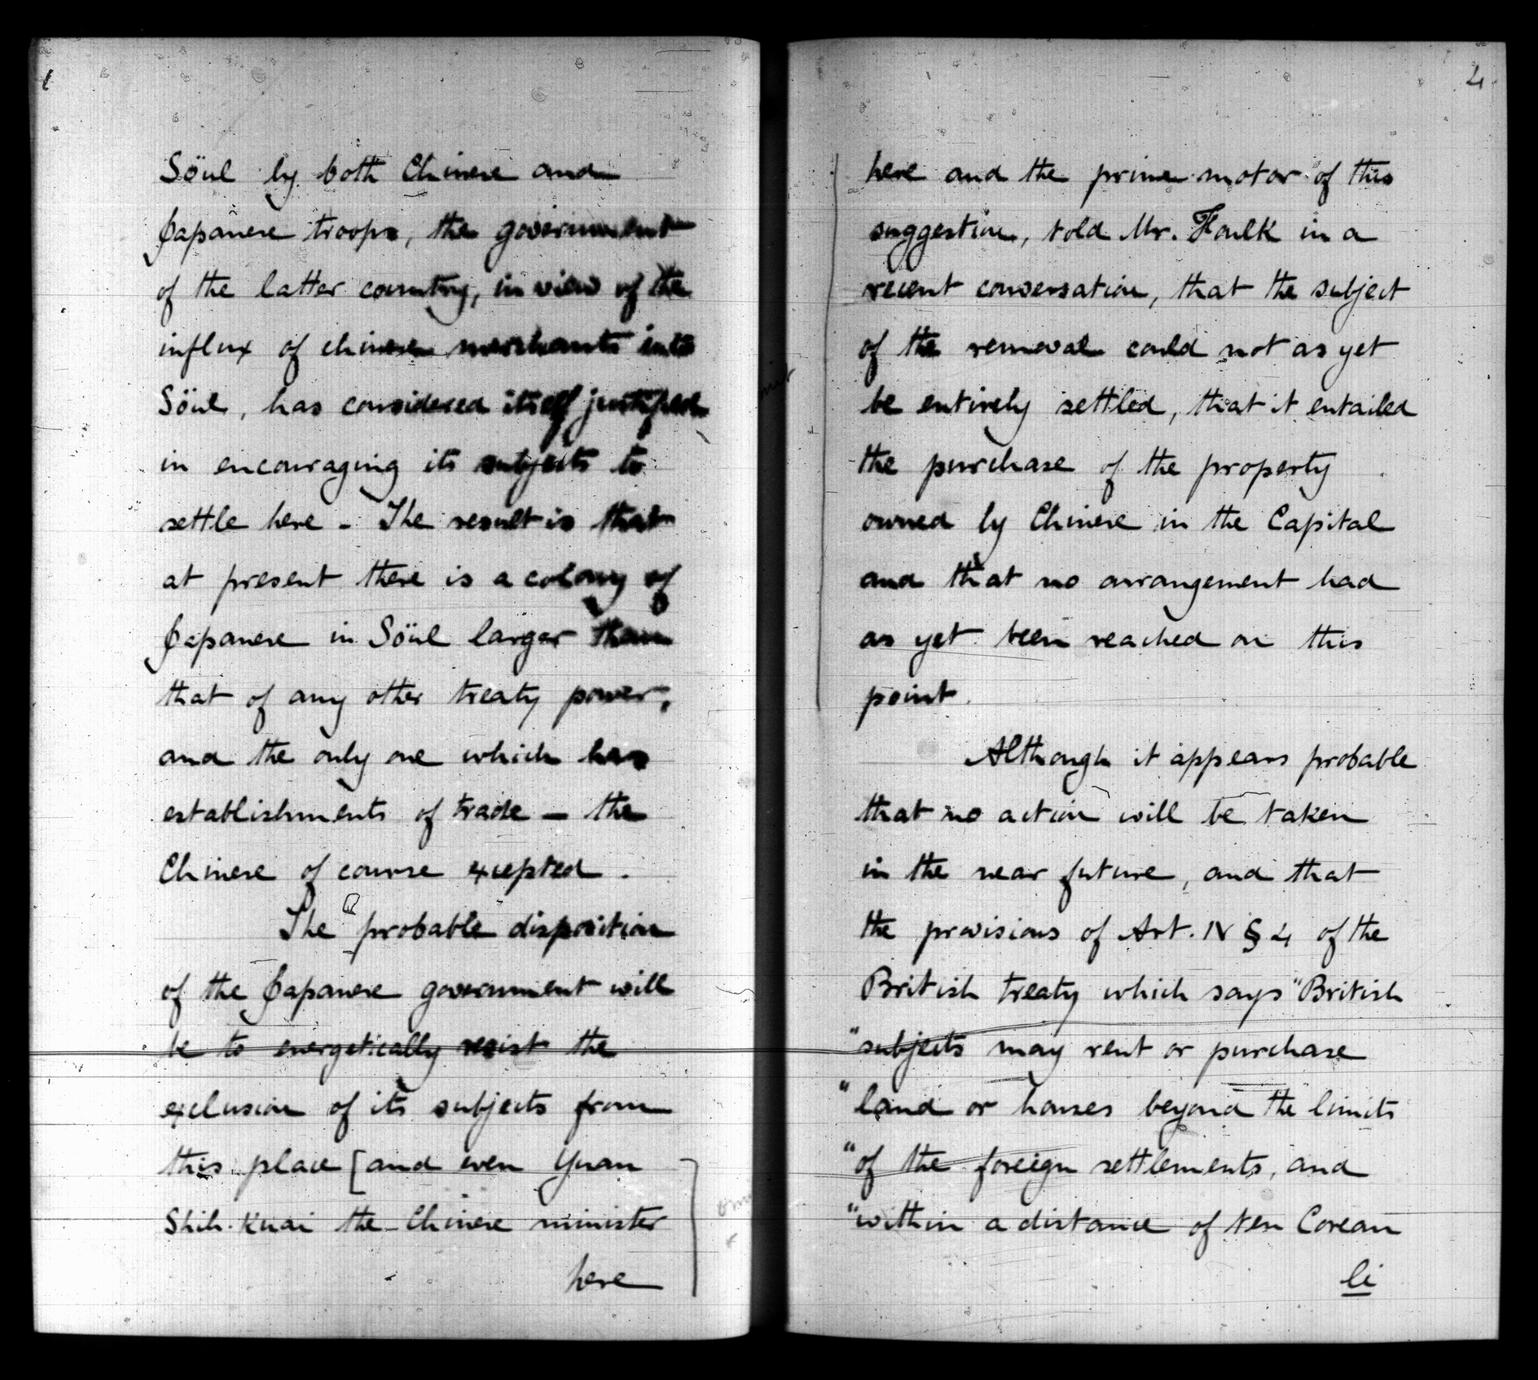 Söul by both Chinese and
Japanese troops, the government
of the latter country, in view of the
influx of chinese merchants into
Söul, has considered itself justified
in encouraging its subjects to
settle here - The result is that
at present there is a colony of
Japanese in Söul larger than
that of any other treaty power,
and the only one which has
establishments of trade — the
Chinese of course excepted.
The probable disposition
of the Japanese government will
be to energetically resist the
exclusion of its subjects from
this place [and even Yuan
Shih-Kuai the Chinese minister
here
4
here and the prime motor of this
suggestion, told Mr. Foulk in a
recent conversation, that the subject
of the removal could not as yet
be entirely settled, that it entailed
the purchase of the property
owned by Chinese in the Capital
and that no arrangement had
as yet been reached on this
point.
Although it appears probable
that no action will be taken
in the near future, and that
the provisions of Art. IV § 4 of the
British treaty which says "British
"subjects may rent or purchase
"land or houses beyond the limits
"of the foreign settlements, and
"within a distance of ten Corean
li